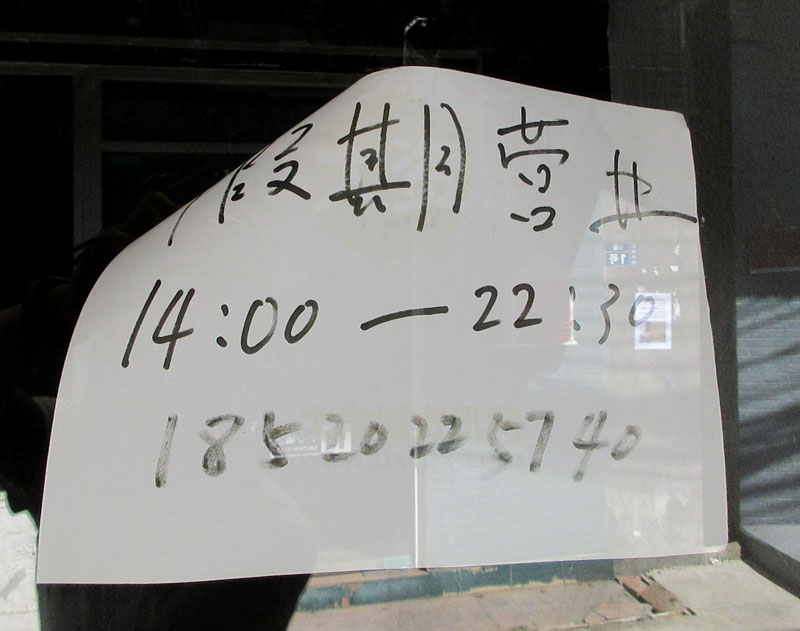 假期营业
14:00—22:30
18520225740